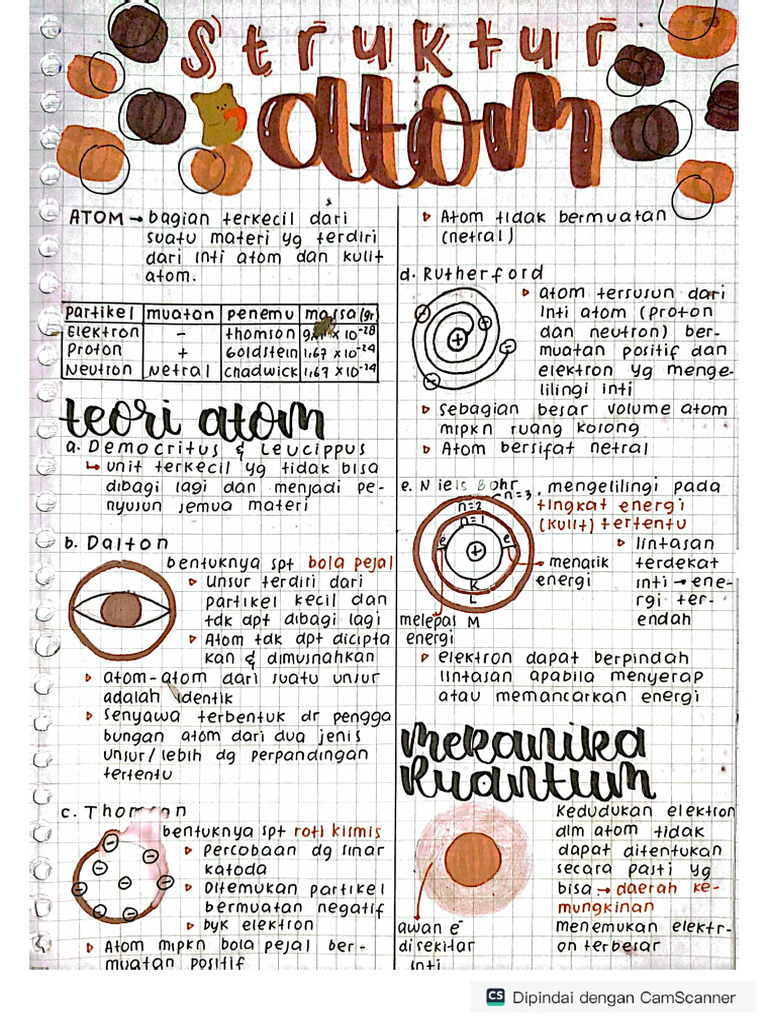 Struktur
atom
ATOM → bagian terkecil dari
suatu materi yg terdiri
dari inti atom dan kulit
atom.
Partikel muatan penemu massa (gr)
Elektron - thomson x 10⁻²⁸
Proton + Goldstein 1,67 x 10⁻²⁴
Neutron Netral chadwick 1,67 x 10⁻²⁴
teori atom
a. Democritus & Leucippus
↳ unit terkecil yg tidak bisa
dibagi lagi dan menjadi pe-
nyusun semua materi
b. Dalton
bentuknya spt bola pejal
▹ Unsur terdiri dari
partikel kecil dan
tdk dpt dibagi lagi
▹ Atom tdk dpt dicipta
kan & dimusnahkan
▹ atom-atom dari suatu unsur
adalah identik
▹ senyawa terbentuk dr pengga
bungan atom dari dua jenis
unsur/lebih dg perpandingan
tertentu
c. Thomson
bentuknya spt roti kismis
▹ percobaan dg sinar
katoda
▹ Ditemukan partikel
bermuatan negatif
▹ byk elektron
▹ Atom mipkn bola pejal ber-
muatan positif
▹ Atom tidak bermuatan
(netral)
d. Rutherford
▹ atom tersusun dari
inti atom (proton
dan neutron) ber-
muatan positif dan
elektron yg menge-
lilingi inti
▹ sebagian besar volume atom
mipkn ruang kosong
▹ Atom bersifat netral
e. Niels Bohr
n=3
n=2
n=1
e
e
+
K
L
M
mengelilingi pada
tingkat energi
(kulit) tertentu
▹ lintasan
terdekat
inti → ene-
rgi ter-
endah
menarik
energi
melepas
energi
▹ elektron dapat berpindah
lintasan apabila menyerap
atau memancarkan energi
mekanika
kuantum
Kedudukan elektron
dlm atom tidak
dapat ditentukan
secara pasti yg
bisa → daerah ke-
mungkinan
menemukan elektr-
on terbesar
awan e⁻
disekitar
inti
CS Dipindai dengan CamScanner